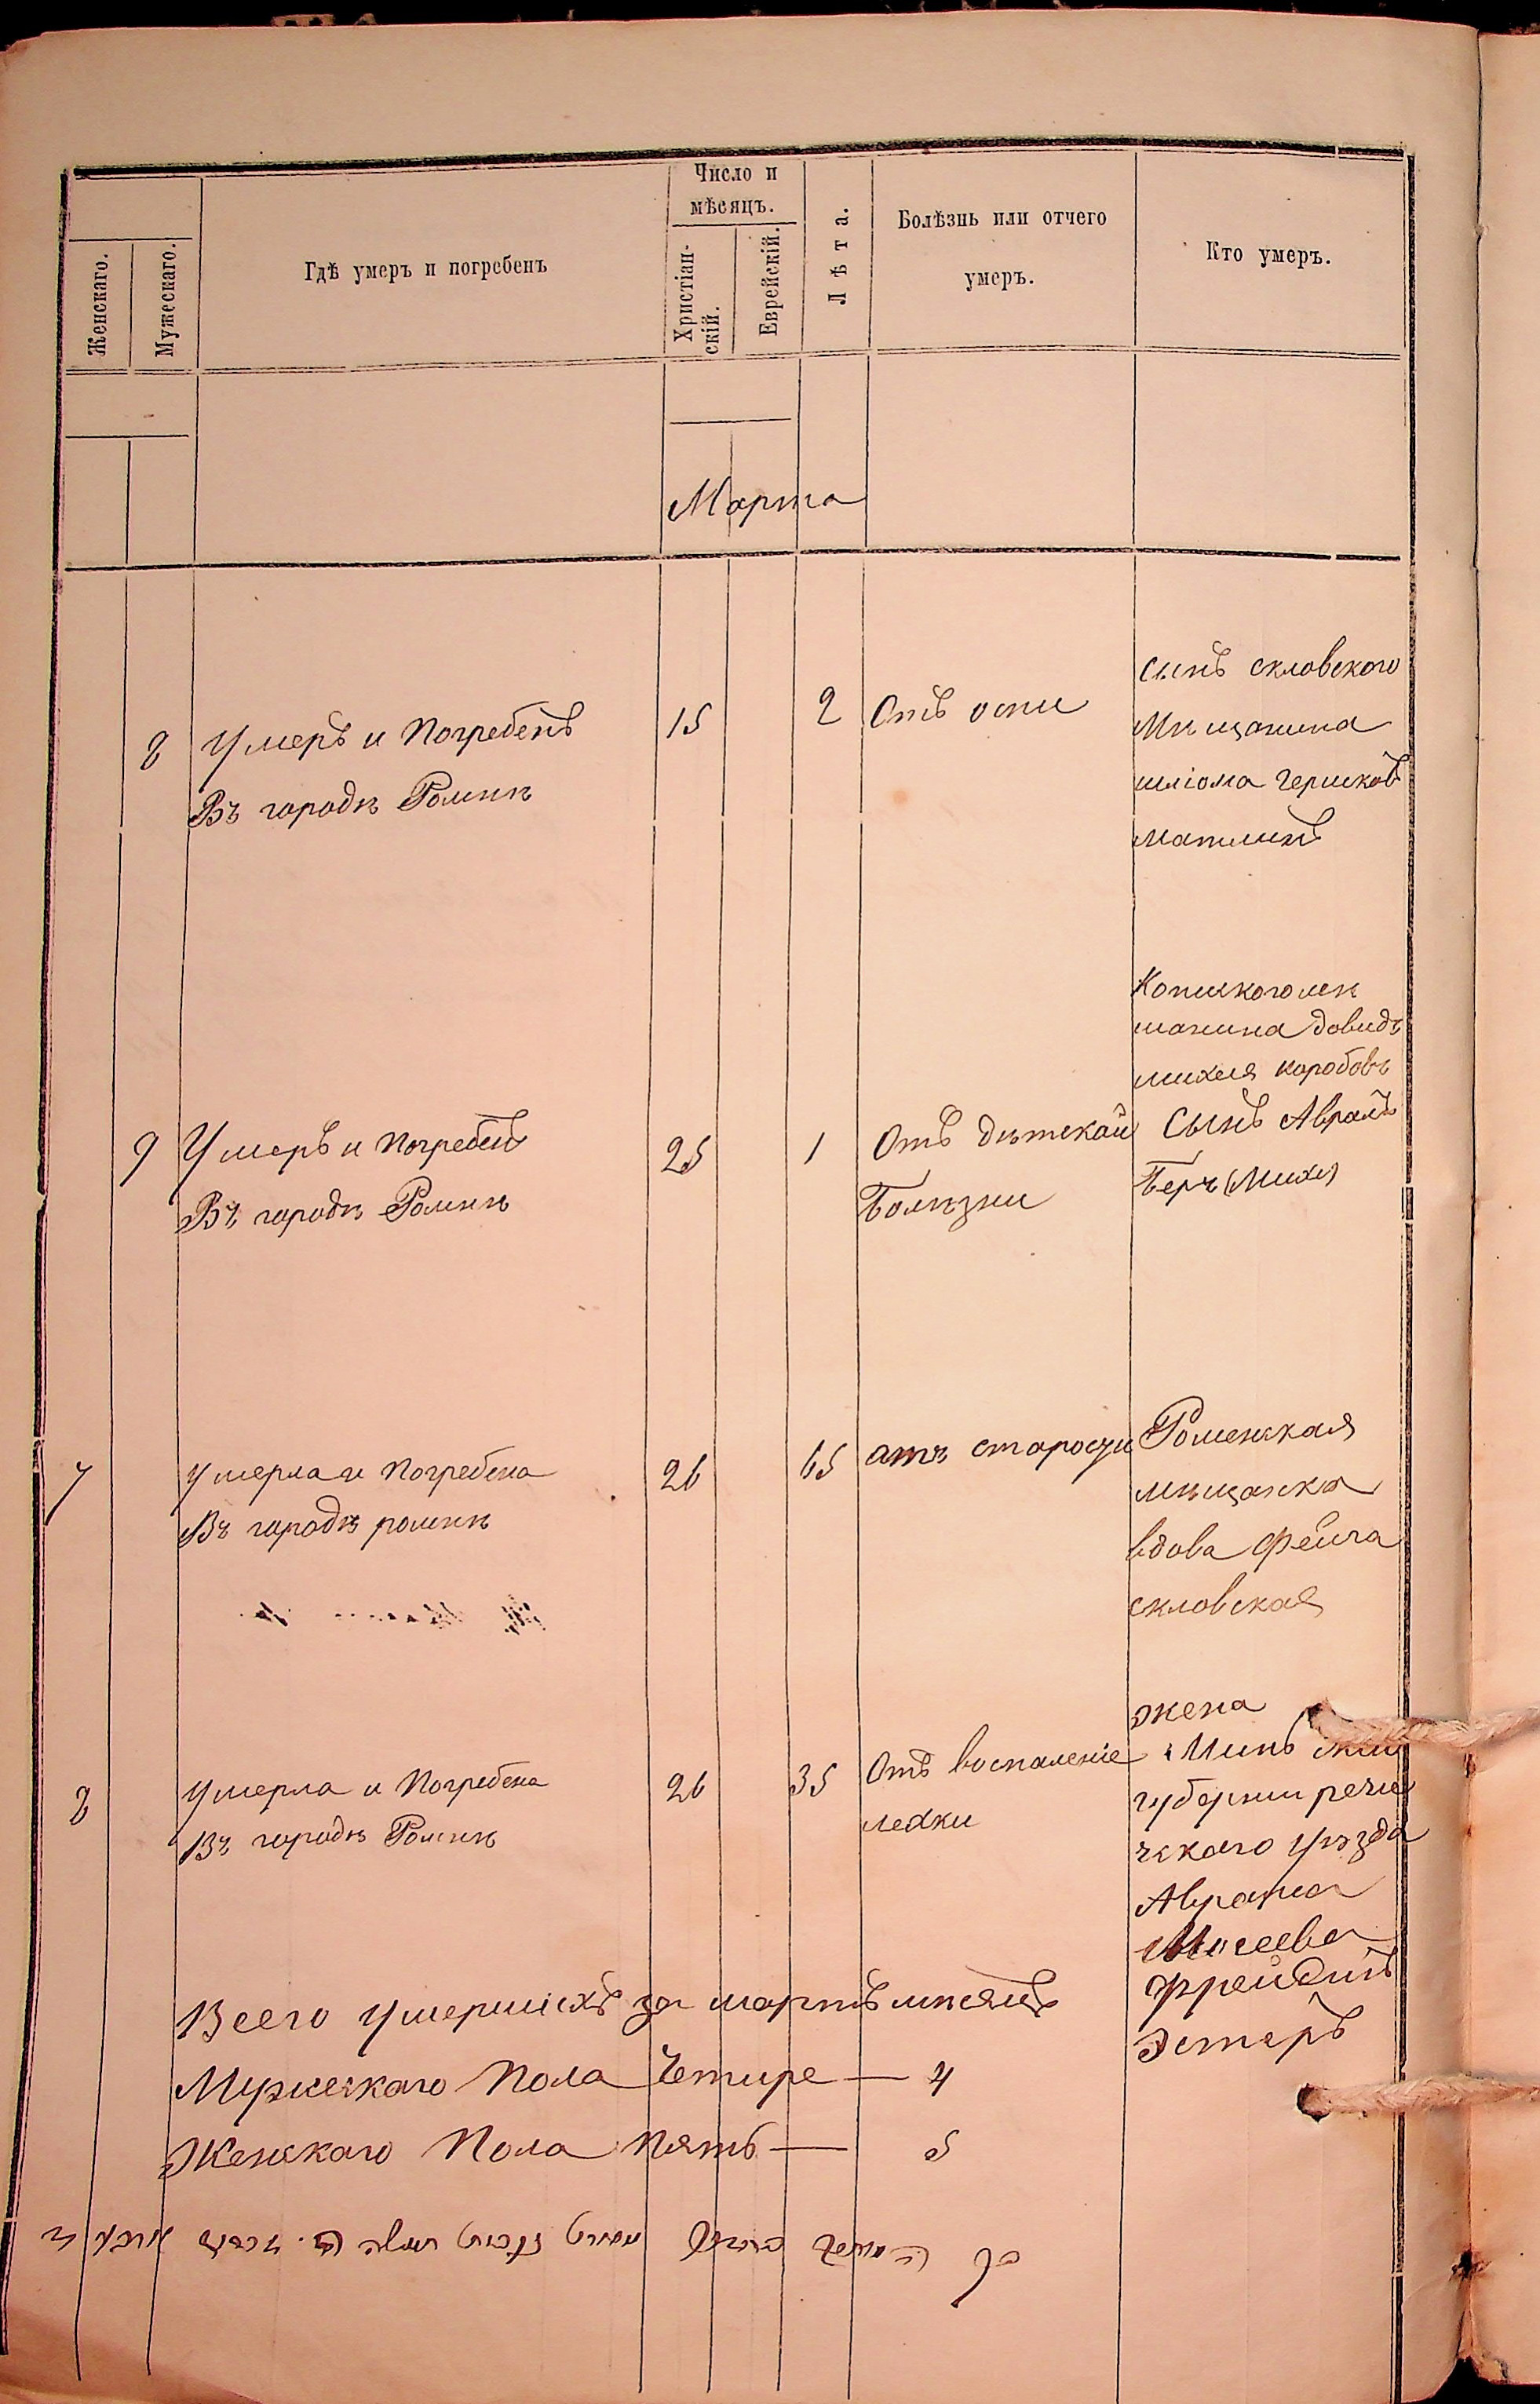 Женскаго.
Мужескаго.
Гдѣ умеръ и погребенъ
Число и
мѣсяцъ.
Христіан-
скій.
Еврейскій.
Лѣта.
Болѣзнь или отчего
умеръ.
Кто умеръ.
Марта
8
Умеръ и Погребенъ
Въ городѣ Ромнѣ
15
2
Отъ оспи
сынъ скловского
Мѣщанина
шліома Гершковъ
матлинъ
9
Умеръ и Погребенъ
Въ городѣ Ромнѣ
25
1
Отъ дѣтской
Болѣзни
Копиского меѣ
шанина довидъ
михля коробовъ
Сынъ Аврамъ
Беръ
7
умерла и Погребена
Въ городѣ ромнѣ
26
65
отъ старости
Роменская
мѣщанка
вдова Фейга
скловская
8
умерла и Погребена
Въ городѣ Ромнѣ
26
35
Отъ воспаление
лехки
жена
Минь
губернии речи
чскаго уѣзда
Аврама
Мосеева
Фрейдинъ
Эстеръ
Всего умершихъ за мартъ мѣсяцъ
Мужескаго Пола Четире — 4
Женскаго Пола Пять — 5